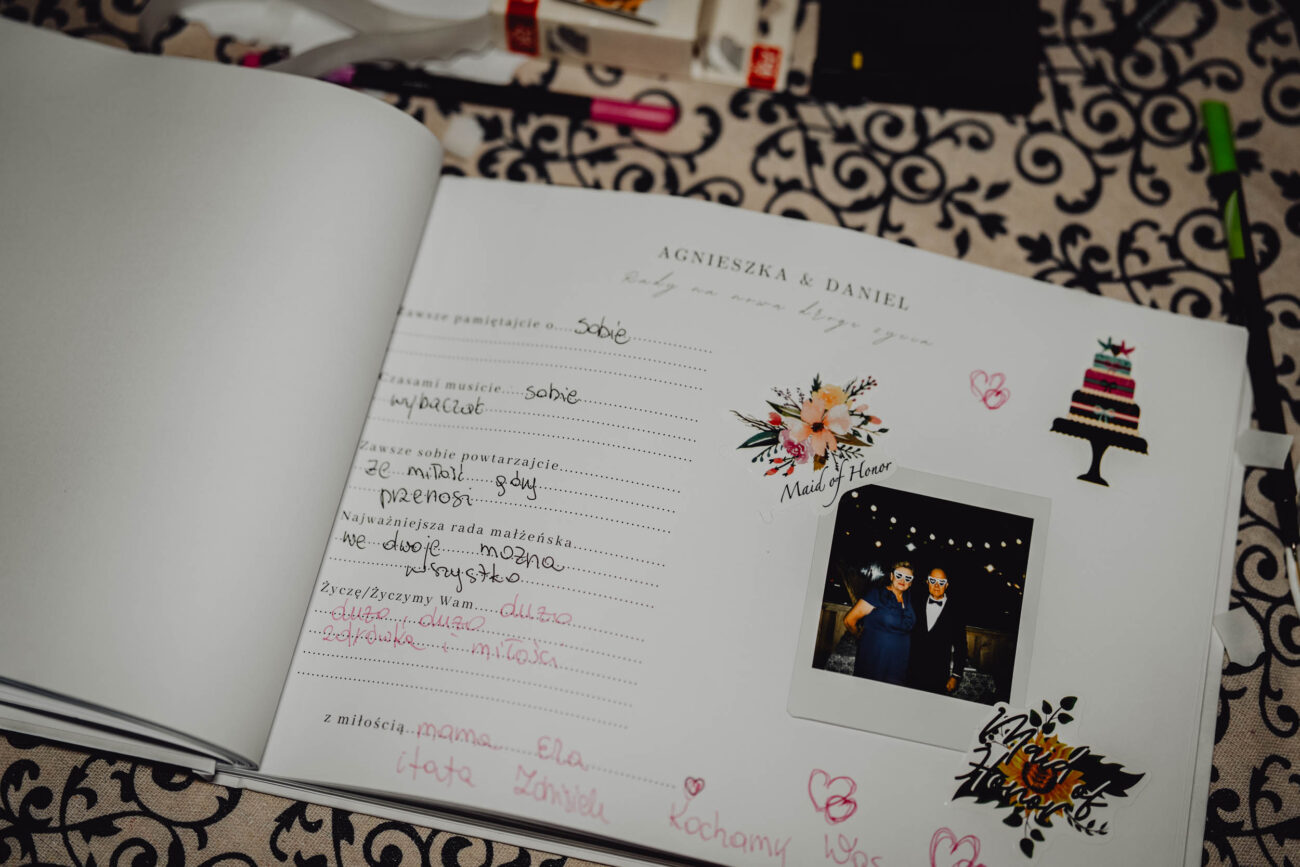 AGNIESZKA & DANIEL
Rady na nową drogę życia
Zawsze pamiętajcie o.... sobie
Czasami musicie... sobie
wybaczać
Zawsze sobie powtarzajcie
że miłość góry
przenosi
Najważniejsza rada małżeńska
we dwoje można
wszystko
Życzę/Życzymy Wam.... dużo
dużo, dużo
zdrówka i miłości
z miłością mama Ela
i tata Zdzisiek
Kochamy Was
Maid of Honor
Maid of Honor